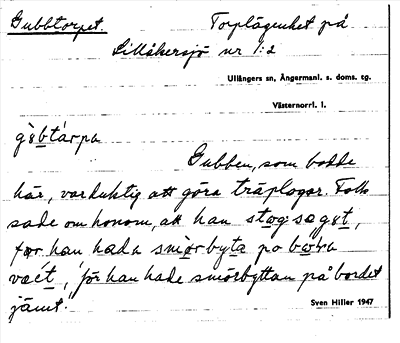 Gubbtorpet. Torplägenhet på
Lillåkersjö nr 1:2
Ullångers sn, Ångermanl. s. doms. tg.
Västernorrl. l.
gòbtárpa
Gubben, som bodde
här, var duktig att göra träplogar. Folk
sade om honom, att han
han hada po
för han hade smörbyttan på bordet
jämt.
Sven Hiller 1947